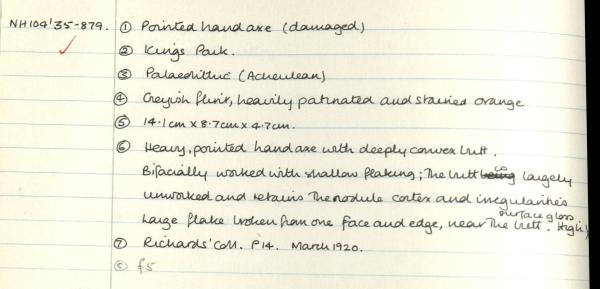 NH104'35-879. ① Pointed hand axe (damaged)
② Kings Park.
③ Palaeolithic (Acheulean)
④ Greyish flint, heavily patinated and stained orange
⑤ 14.1cm x 8.7cm x 4.7cm.
⑥ Heavy, pointed hand axe with deeply convex butt.
Bifacially worked with shallow flaking; The butt being is largely
unworked and retains the nodule cortex and irregularities
Large flake broken from one face and edge, near the butt. High surface gloss
⑦ Richards' Coll. P14. March 1920.
⑧ f5